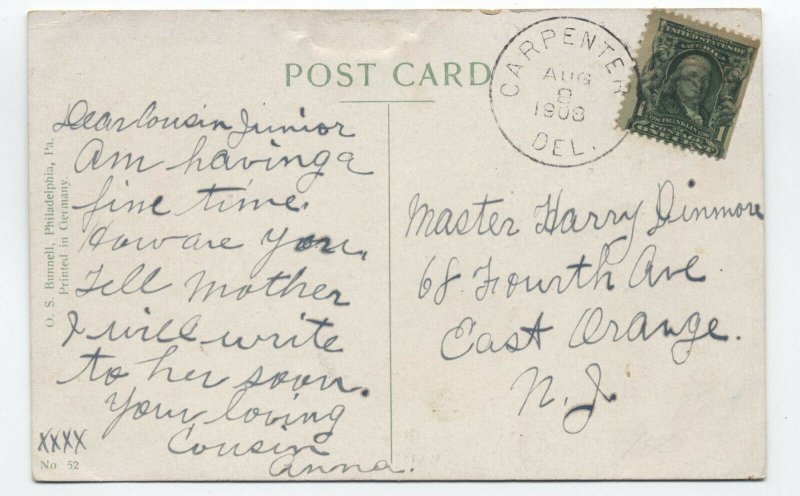 POST CARD
CARPENTER
AUG
8
1908
DEL.
UNITED STATES OF
AMERICA
FRANKLIN
1 1
ONE CENT
Dear Cousin Junior
Am having a
fine time.
How are you.
Tell Mother
I will write
to her soon.
Your loving
Cousin
Anna.
XXXX
No 52
O. S. Bunnell, Philadelphia, Pa.
Printed in Germany.
Master Harry Dinmore
68 Fourth Ave
East Orange.
N. J.